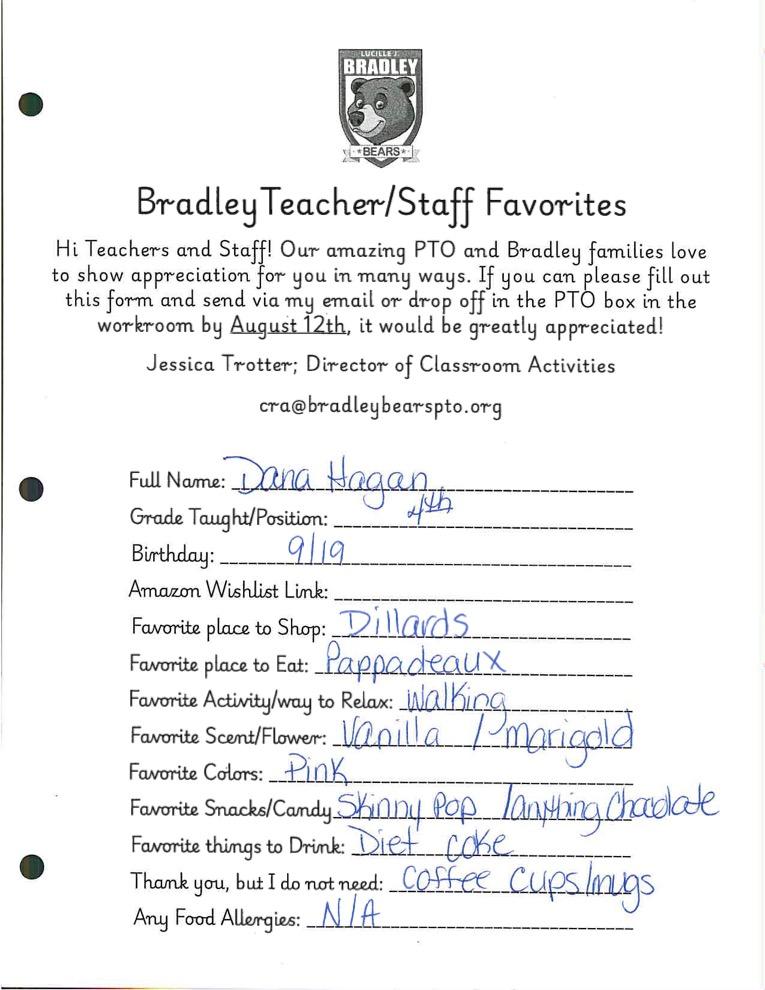 LUCILLE J.
BRADLEY
★BEARS★
Bradley Teacher/Staff Favorites
Hi Teachers and Staff! Our amazing PTO and Bradley families love
to show appreciation for you in many ways. If you can please fill out
this form and send via my email or drop off in the PTO box in the
workroom by August 12th, it would be greatly appreciated!
Jessica Trotter; Director of Classroom Activities
cra@bradleybearspto.org
Full Name: Dana Hagan
Grade Taught/Position: 4th
Birthday: 9/19
Amazon Wishlist Link:
Favorite place to Shop: Dillards
Favorite place to Eat: Pappadeaux
Favorite Activity/way to Relax: Walking
Favorite Scent/Flower: Vanilla / marigold
Favorite Colors: Pink
Favorite Snacks/Candy Skinny Pop /anything Chocolate
Favorite things to Drink: Diet coke
Thank you, but I do not need: Coffee cups/mugs
Any Food Allergies: N/A